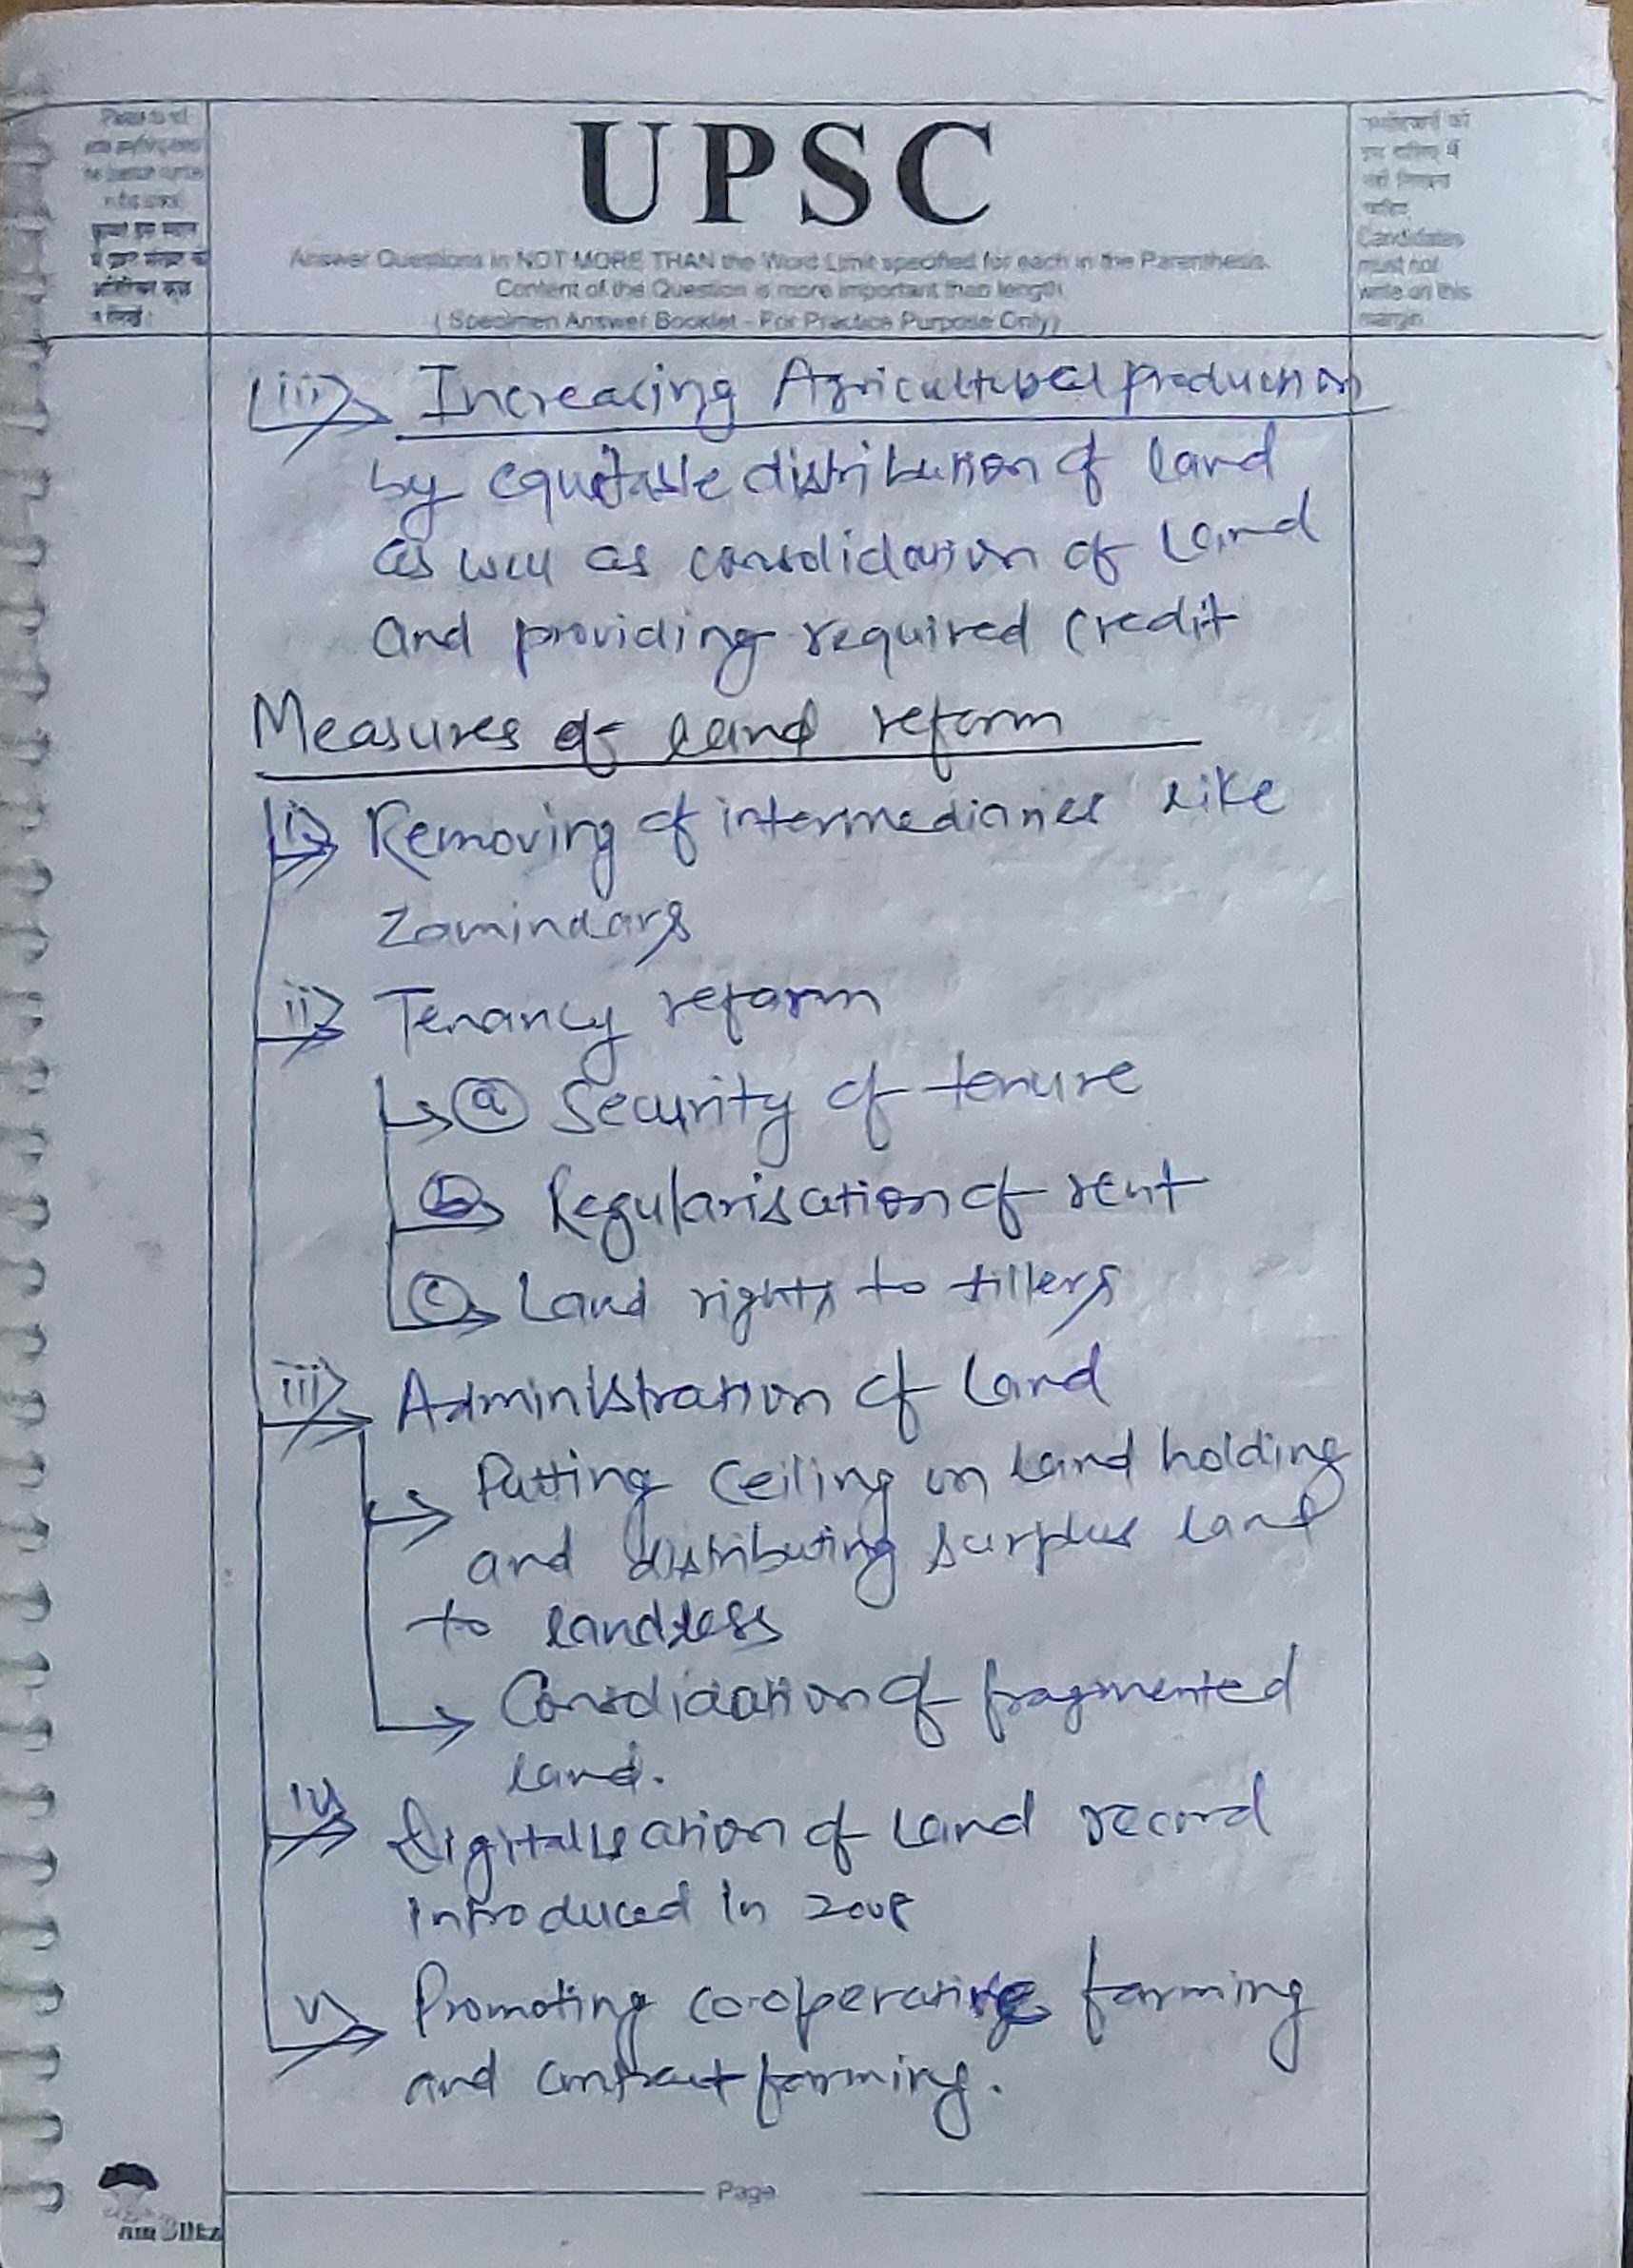 UPSC
Answer Questions in NOT MORE THAN the Word Limit specified for each in the Parenthesis.
Content of the Question is more important than length
( Specimen Answer Booklet - For Practice Purpose Only)
Candidates
must not
write on this
margin
(iii) Increasing Agricultural production
by equitable distribution of land
as well as consolidation of Land
and providing required credit
Measures of land reform
i) Removing of intermediaries like
Zamindars
ii) Tenancy reform
(a) Security of tenure
(b) Regularisation of rent
(c) Land rights to tillers
iii) Administration of Land
Putting Ceiling on land holding
and distributing surplus land
to landless
Consolidation of fragmented
land.
iv) Digitalisation of Land record
introduced in 2008
v) Promoting co-operative farming
and contract farming.
Page